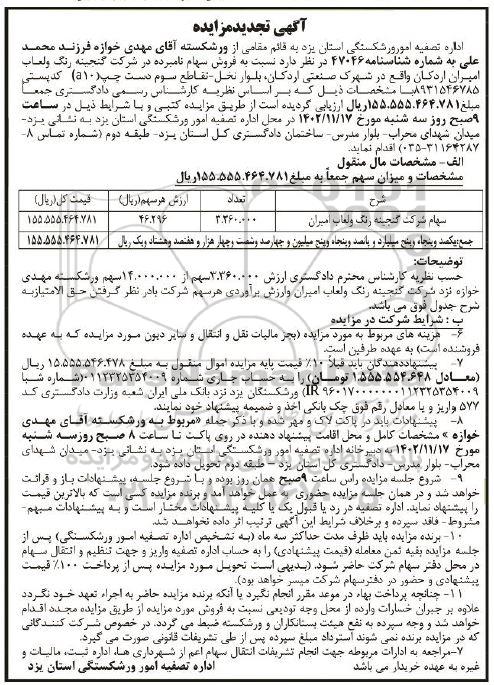 آگهی تجدیدمزایده
اداره تصفیه امورورشکستگی استان یزد به قائم مقامی از ورشکسته آقای مهدی خوازه فرزند محمد
علی به شماره شناسنامه ۴۷۰۴۶ در نظر دارد نسبت به فروش سهام نامبرده در شرکت گنجینه رنگ ولعاب
امیران اردکان واقع در شهرک صنعتی اردکان، بلوار نخل-تقاطع سوم دست چپ(a۱۰) کدپستی
۸۹۳۱۵۴۶۷۸۵با مشخصات ذیل که بر اساس نظریه کارشناس رسمی دادگستری جمعاً
مبلغ۱۵۵.۵۵۵.۴۶۴.۷۸۱ریال ارزیابی گردیده است از طریق مزایده کتبی و با شرایط ذیل در ساعت
۹صبح روز سه شنبه مورخ ۱۴۰۲/۱۱/۱۷ در محل اداره تصفیه امور ورشکستگی استان یزد به نشانی یزد-
میدان شهدای محراب- بلوار مدرس- ساختمان دادگستری کل استان یزد- طبقه دوم (شماره تماس ۸-
۰۳۵-۳۱۱۶۴۲۸۷) اقدام نماید.
الف- مشخصات مال منقول
مشخصات و میزان سهم جمعاً به مبلغ۱۵۵.۵۵۵.۴۶۴.۷۸۱ریال
شرح تعداد ارزش هرسهم(ریال) قیمت کل(ریال)
سهام شرکت گنجینه رنگ ولعاب امیران ۳.۳۶۰.۰۰۰ ۴۶.۲۹۶ ۱۵۵.۵۵۵.۴۶۴.۷۸۱
جمع:یکصد وپنجاه وپنج میلیارد و پانصد وپنجاه وپنج میلیون و چهارصد وشصت وچهار هزار و هفتصد وهشتاد ویک ریال
توضیحات:
حسب نظریه کارشناس محترم دادگستری ارزش ۳.۳۶۰.۰۰۰سهم از ۱۴.۰۰۰.۰۰۰سهم ورشکسته مهدی
خوازه نزد شرکت گنجینه رنگ ولعاب امیران وارزش برآوردی هرسهم شرکت بادر نظر گرفتن حق الامتیازبه
شرح جدول فوق می باشد.
ب : شرایط شرکت در مزایده
۶- هزینه های مربوط به مورد مزایده (بجز مالیات نقل و انتقال و سایر دیون مورد مزایده که به عهده
فروشنده است) به عهده طرفین است.
۷- پیشنهاددهندگان باید قبلاً ۱۰٪ قیمت پایه مزایده اموال منقول به مبلغ ۱۵.۵۵۵.۵۴۶.۴۷۸ ریال
(معادل ۱.۵۵۵.۵۵۴.۶۴۸ تومان) را به حساب جاری شماره ۰۱۱۲۳۲۵۳۵۴۰۰۹ (شماره شبا
IR ۹۶۰۱۷۰۰۰۰۰۰۰۱۱۲۳۲۵۳۵۴۰۰۹) ورشکستگان یزد نزد بانک ملی ایران شعبه وزارت دادگستری کد
۵۷۷ واریز و یا معادل رقم فوق چک بانکی اخذ و ضمیمه پیشنهاد خود نمایند.
۸- پیشنهادات باید در پاکت لاک و مهر شده و با ذکر جمله «مربوط به ورشکسته آقای مهدی
خوازه » مشخصات کامل و محل اقامت پیشنهاد دهنده در روی پاکت تا ساعت ۸ صبح روزسه شنبه
مورخ ۱۴۰۲/۱۱/۱۷ در دبیرخانه اداره تصفیه امور ورشکستگی استان یزد به نشانی یزد- میدان شهدای
محراب- بلوار مدرس- دادگستری کل استان یزد - طبقه دوم تحویل داده شود.
۹- شروع جلسه مزایده رأس ساعت ۹صبح همان روز بوده و با شروع جلسه، پیشنهادات باز و قرائت
خواهد شد و در همان جلسه مزایده حضوری به عمل خواهد آمد و برنده مزایده کسی است که بالاترین قیمت
را پیشنهاد نماید. اداره تصفیه در رد یا قبول یک یا کلیه پیشنهادات مختار است و به پیشنهادات مبهم-
مشروط- فاقد سپرده و برخلاف شرایط این آگهی ترتیب اثر داده نخواهد شد.
۱۰- برنده مزایده باید ظرف مدت حداکثر سه ماه (به تشخیص اداره تصفیه امور ورشکستگی) پس از
جلسه مزایده بقیه ثمن معامله (قیمت پیشنهادی) را به حساب اداره تصفیه واریز و جهت تنظیم و انتقال سهام
در محل دفتر سهام شرکت حاضر شود. (بدیهی است تحویل مورد مزایده پس از پرداخت ۱۰۰٪ قیمت
پیشنهادی و حضور در دفترسهام شرکت میسر خواهد بود).
۱۱- چنانچه پرداخت بهاء در موعد مقرر انجام نگیرد یا آنکه برنده مزایده حاضر به اجراء تعهد خود نگردد
علاوه بر جبران خسارات وارده از محل وجه تودیعی نسبت به فروش مورد مزایده از طریق مزایده مجدد اقدام
خواهد شد و وجه سپرده به نفع هیئت بستانکاران و ورشکسته ضبط می گردد. در خصوص شرکت کنندگانی
که در مزایده برنده نمی شوند استرداد مبلغ سپرده پس از طی تشریفات قانونی صورت می گیرد.
۷-مراجعه به ادارات مربوطه جهت انجام تشریفات انتقال سهام اعم از شهرداری ها، اداره ثبت، مالیات و
غیره به عهده خریدار می باشد اداره تصفیه امور ورشکستگی استان یزد